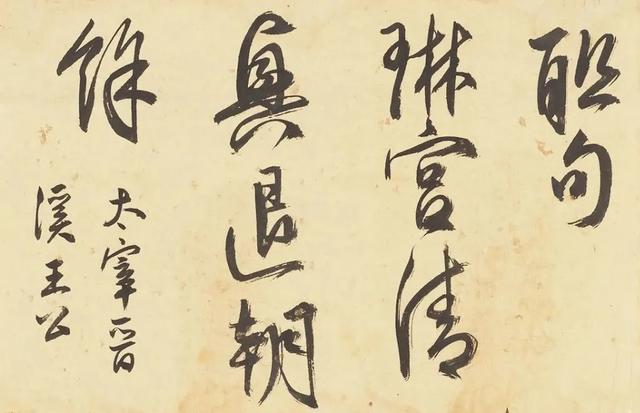 联句
琳宫清
真退朝
馀
太宰晋
溪王公